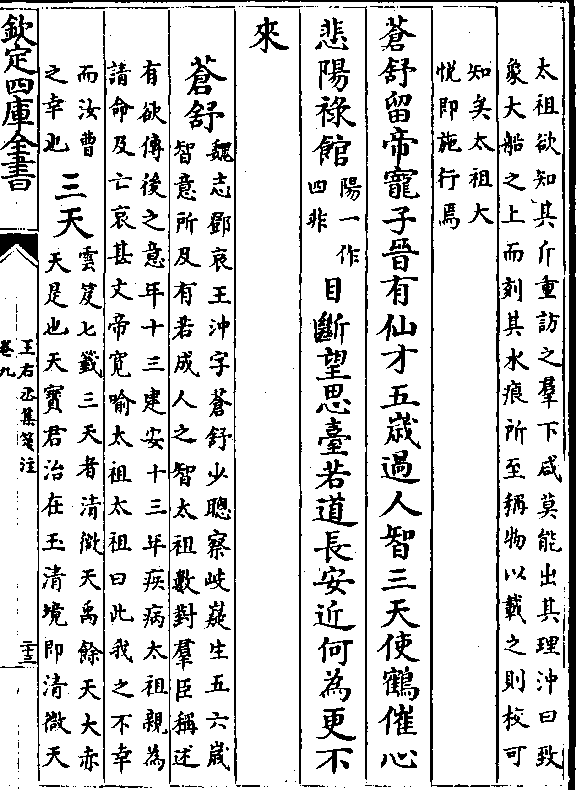 太祖欲知其斤重訪之羣下咸莫能出其理沖曰致
象大船之上而刻其水痕所至稱物以載之則校可
知矣太祖大
悅即施行焉
蒼舒留帝寵子晉有仙才五歲過人智三天使鶴催心
悲陽祿館陽一作四非目斷望思臺若道長安近何為更不
來
蒼舒魏志鄧哀王沖字蒼舒少聰察岐嶷生五六歲
智意所及有若成人之智太祖數對羣臣稱述
有欲傳後之意年十三建安十三年疾病太祖親為
請命及亡哀甚文帝寬喻太祖太祖曰此我之不幸
而汝曹
之幸也
三天雲笈七籤三天者清微天禹餘天大赤
天是也天寶君治在玉清境即清微天
欽定四庫全書
王右丞集箋注
卷九
二十三